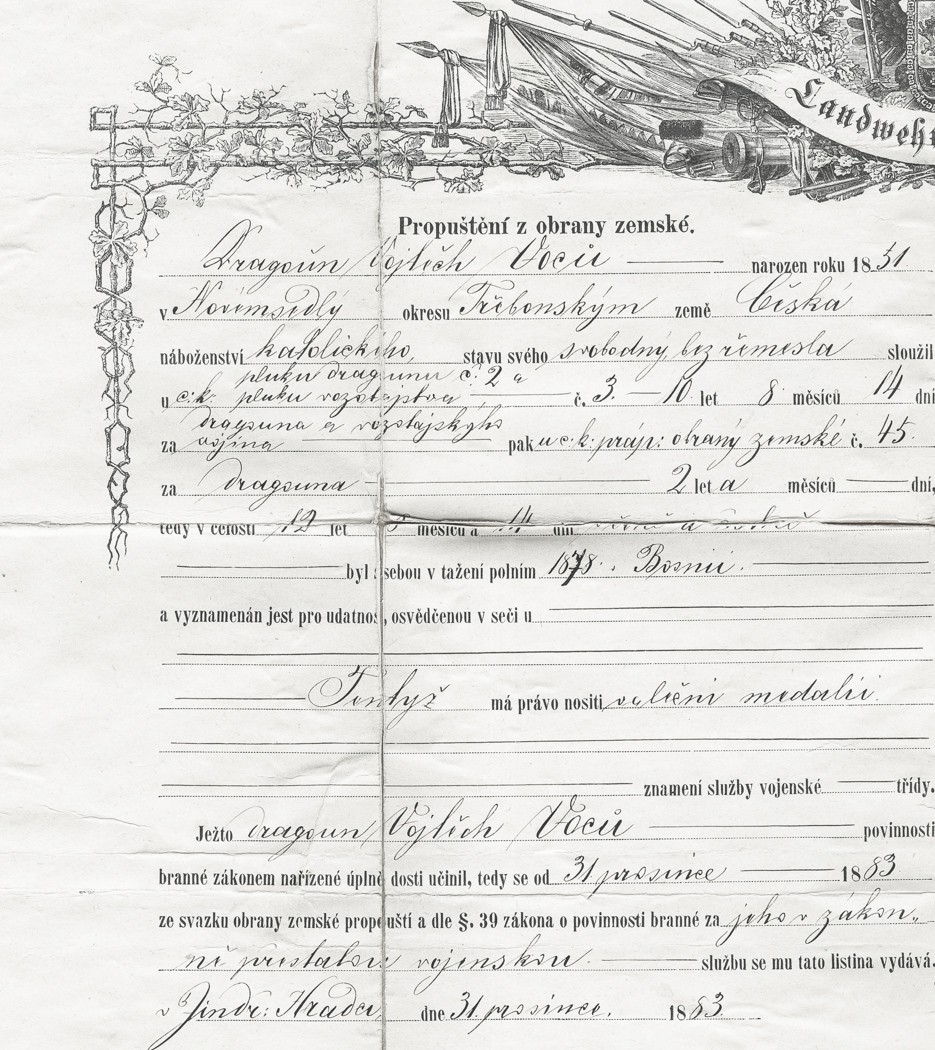 Landwehr
Propuštění z obrany zemské.
Dragoun Vojtěch Voců narozen roku 1851
v Novémsedlý okresu Třeboňským země Česká
náboženství katolického, stavu svého svobodný bez řemesla sloužil
pluku dragounu č: 2 a
u c: k: pluku vozatajstva č. 3. 10 let 8 měsíců 14 dní
dragouna a vozatajského
za vojína pak u c: k: práp: obraný zemské č. 45.
za dragouna 2 let a měsíců dní,
tedy v celosti 12 let měsíců a 14 dní
byl sebou v tažení polním 1878 v Bosnii.
a vyznamenán jest pro udatnost, osvědčenou v seči u
Tentýž má právo nositi válečni medalii.
znamení služby vojenské třídy.
Ježto dragoun Vojtěch Voců povinnosti
branné zákonem nařízené úplně dosti učinil, tedy se od 31 prosince 1883
ze svazku obrany zemské propouští a dle §. 39 zákona o povinnosti branné za jeho v zákon„
ně přestalou vojenskou službu se mu tato listina vydává.
v Jindř: Hradci dne 31. prosince. 1883.